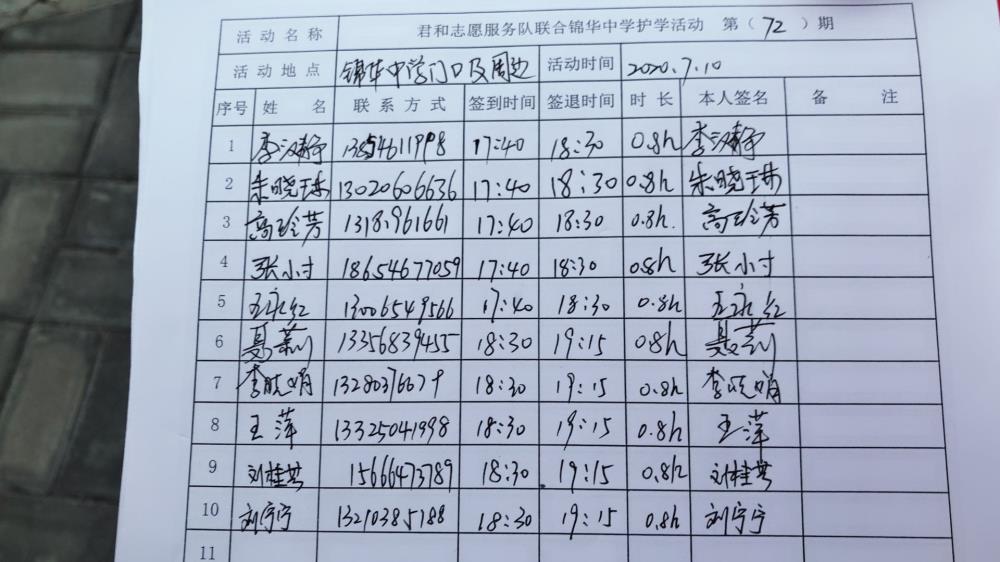 活动名称 君和志愿服务队联合锦华中学护学活动 第（72）期
活动地点 锦华中学门口及周边 活动时间 2020.7.10
序号 姓名 联系方式 签到时间 签退时间 时长 本人签名 备注
1 李汉静 17:40 18:30 0.8h 李汉静
2 朱晓琳 13020606636 17:40 18:30 0.8h 朱晓琳
3 高玲芳 17:40 18:30 0.8h. 高玲芳
4 张小寸 18654677059 17:40 18:30 0.8h 张小寸
5 王永红 13006549566 17:40 18:30 0.8h 王永红
6 聂莉 13356839455 18:30 19:15 0.8h 聂莉
7 李晓娟 18:30 19:15 0.8h 李晓娟
8 王萍 13325041998 18:30 19:15 0.8h 王萍
9 刘桂英 15666473789 18:30 19:15 0.8h 刘桂英
10 刘宁宁 13210385188 18:30 19:15 0.8h 刘宁宁
11